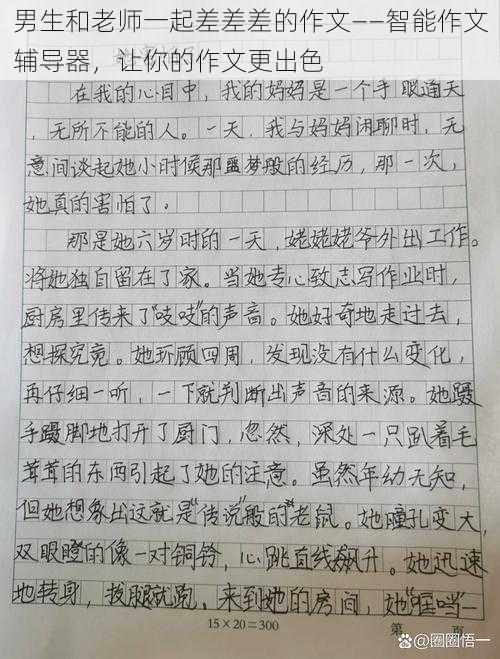 男生和老师一起差差差的作文——智能作文
辅导器，让你的作文更出色
在我的心目中，我的妈妈是一个手眼通天
、无所不能的人。一天，我与妈妈闲聊时，无
意间谈起她小时候那噩梦般的经历，那一次，
她真的害怕了。
那是她六岁时的一天，姥姥姥爷外出工作。
将她独自留在了家。当她专心致志写作业时，
厨房里传来了“吱吱”的声音。她好奇地走过去，
想探究竟。她环顾四周，发现没有什么变化，
再仔细一听，一下就判断出声音的来源。她蹑
手蹑脚地打开了厨门，忽然，深处一只趴着毛
茸茸的东西引起了她的注意。虽然年幼无知，
但她想象出这就是“传说”般的“老鼠。她瞳孔变大，
双眼瞪的像一对铜铃，心跳直线飙升。她迅速
地转身，拔腿就跑，来到她的房间，她“哐当”一
15×20=300
第 页
百家号@圈圈悟一